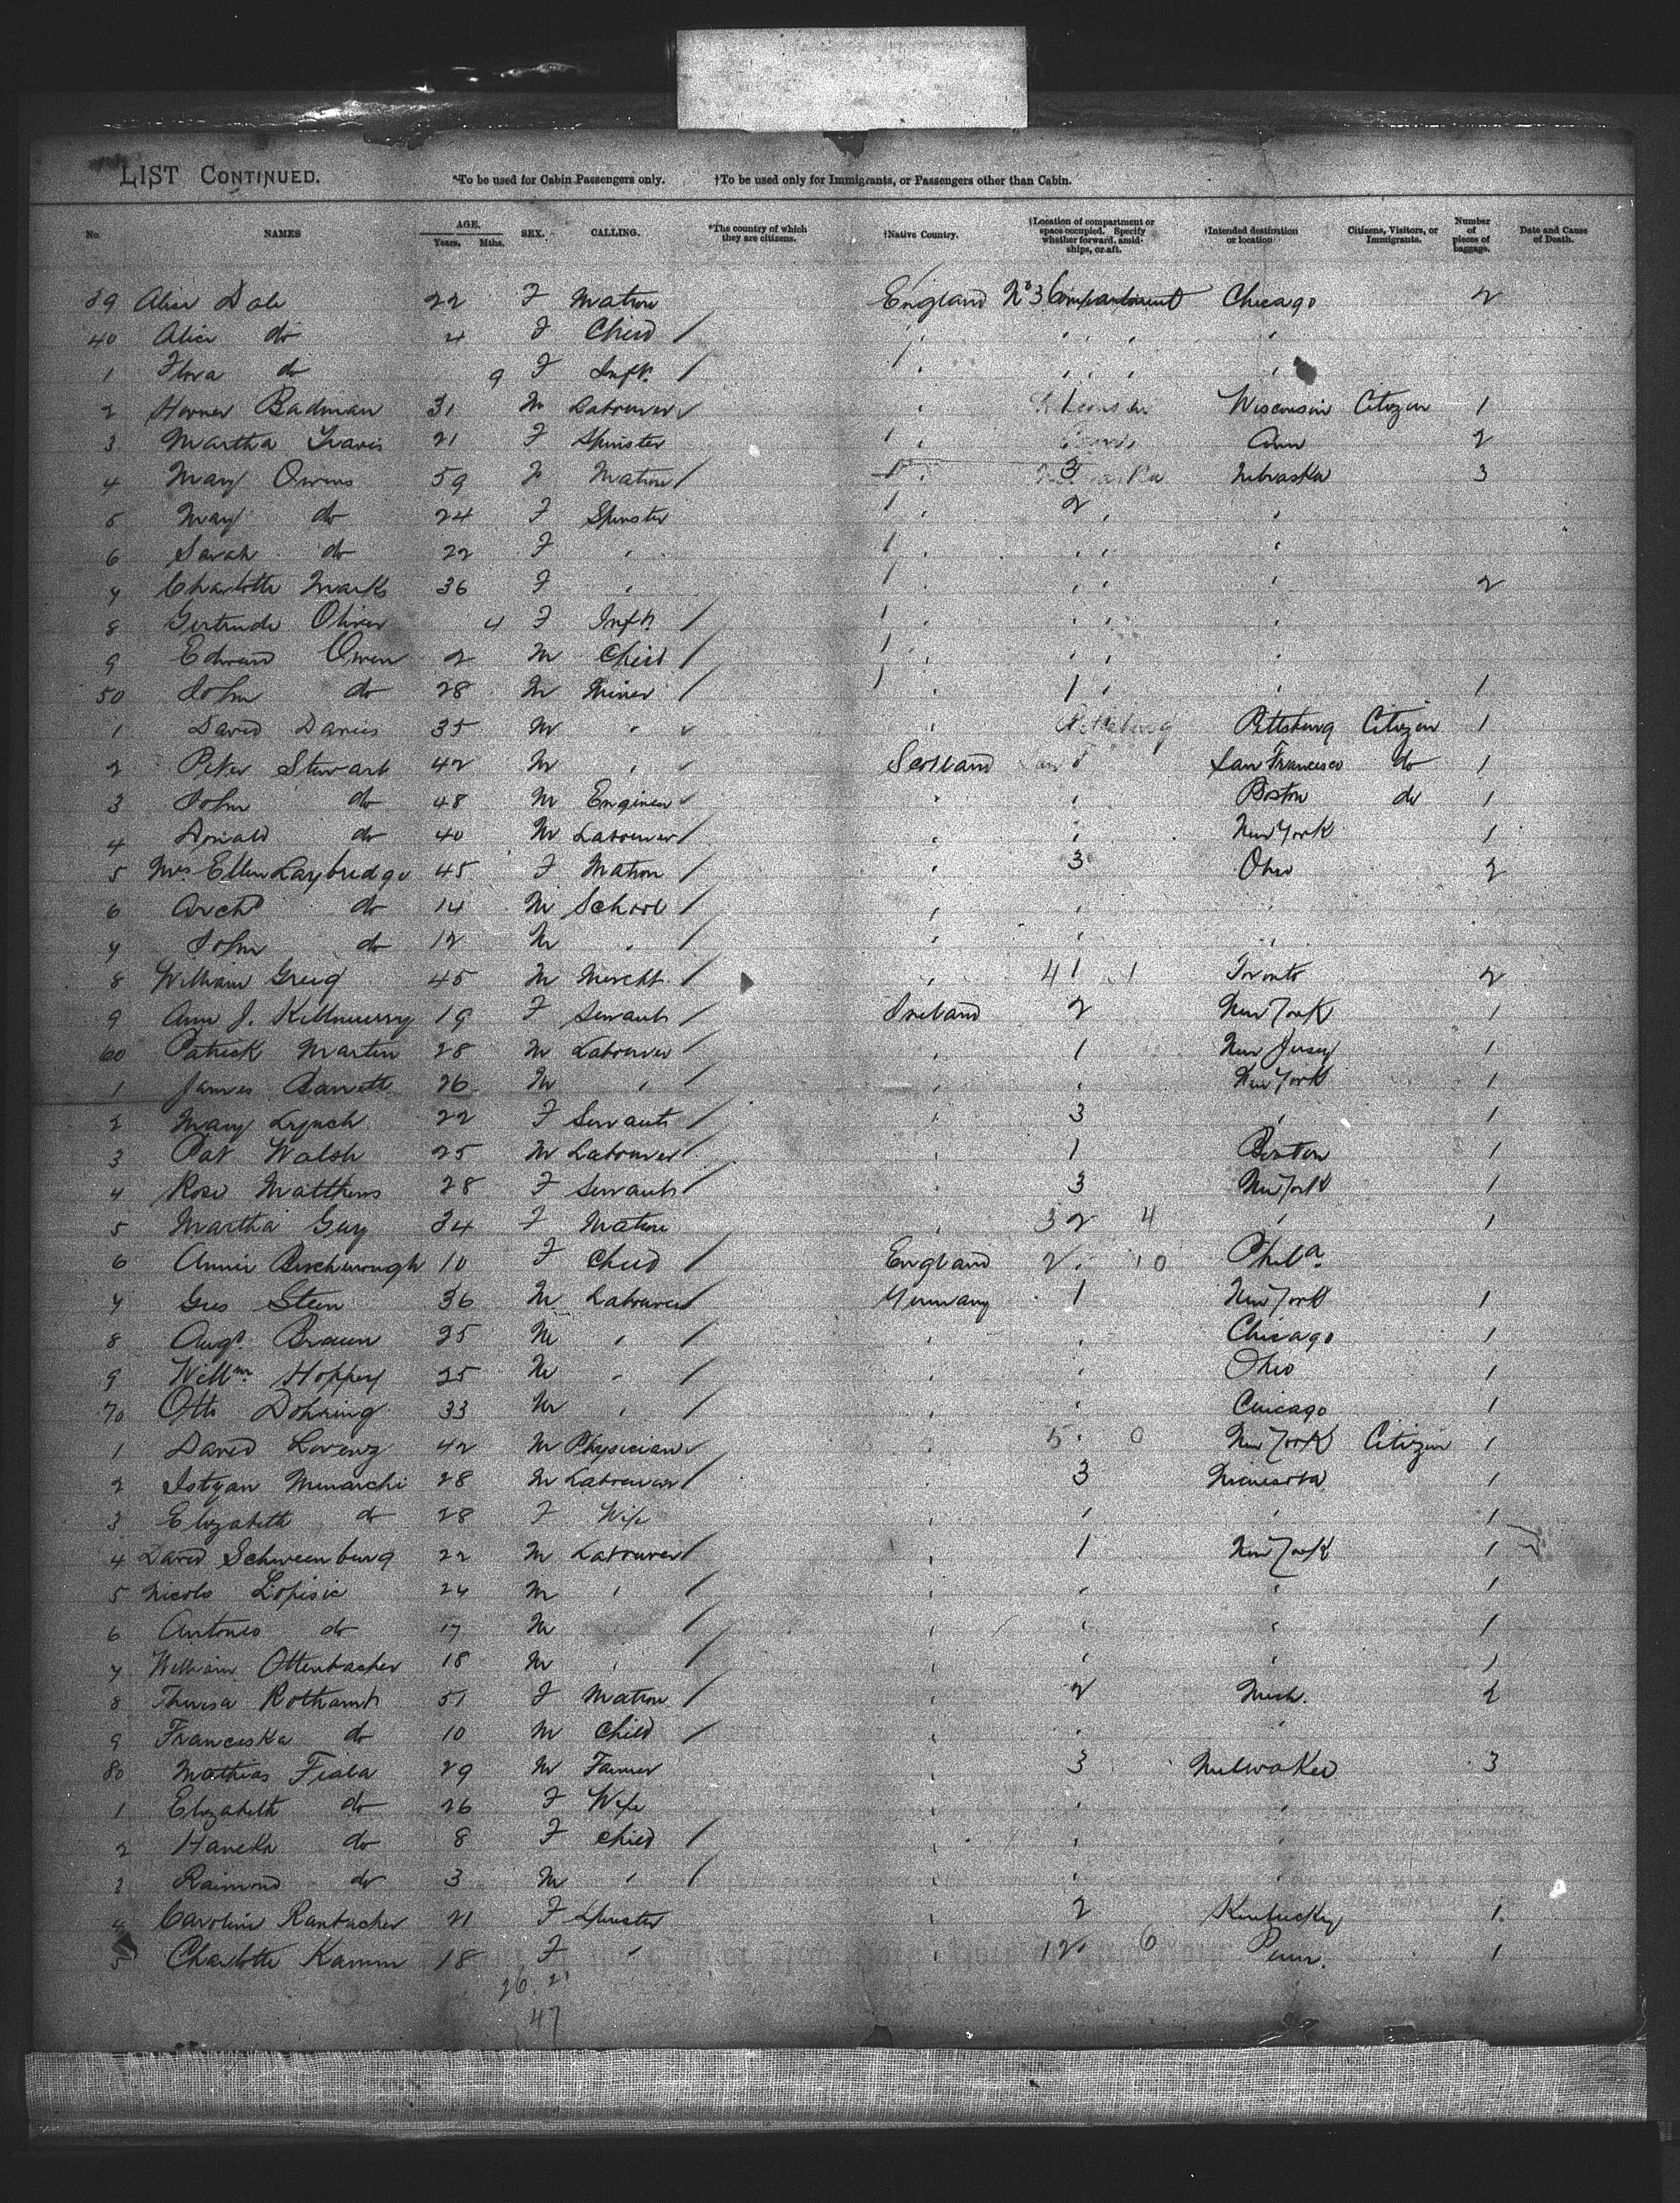 LIST CONTINUED. *To be used for Cabin Passengers only. †To be used only for Immigrants, or Passengers other than Cabin.
No. NAMES AGE. Years. Mths. SEX. CALLING. *The country of which they are citizens. †Native Country. †Location of compartment or space occupied. Specify whether forward, amidships, or aft. †Intended destination or location Citizens, Visitors, or Immigrants. Number of pieces of baggage. Date and Cause of Death.
39 Alice Dale 22 F Matron England No 3 Compartment Chicago 2
40 Alice do 4 F Child /
1 Flora do 9 F Inft. /
2 Horner Badman 31 M Labourer Wisconsin Citizen 1
3 Martha Travis 21 F Spinster 2
4 Mary Owens 59 F Matron / 3 Nebraska 3
5 Mary do 24 F Spinster 2
6 Sarah do 22 F
7 Charlotte Marks 36 F 2
8 Gertrude Oliver 4 F Inft. /
9 Edward Owen 2 M Child /
50 John do 28 M Miner / 1 1
1 David Davies 35 M Pittsburg Citizen 1
2 Peter Stewart 42 M Scotland San Francisco do 1
3 John do 48 M Engineer Boston do 1
4 Donald do 40 M Labourer / New York 1
5 Mrs Ellen Laybridge 45 F Matron / 3 Ohio 2
6 Archd do 14 M School /
7 John do 12 M /
8 William Greig 45 M Mercht. / 41 1 Toronto 2
9 Ann J. 19 F Servant / Ireland 2 New York 1
60 Patrick Martin 28 M Labourer / 1 New Jersey 1
1 James 26 M / New York 1
2 Mary Lynch 22 F Servant / 3 1
3 Pat Walsh 25 M Labourer / 1 Boston 1
4 Rose Matthews 28 F Servant / 3 New York 1
5 Martha Guy 34 F Matron 32 4 1
6 Annie 10 F Child / England 2 10 Phila.
7 Gus Stein 36 M Labourer / Germany 1 New York 1
8 Augt. Braun 25 M / Chicago 1
9 Willm. Hoppey 25 M / Ohio 1
70 Otto Dohring 33 M / Chicago 1
1 David Lorenz 42 M Physician 5 0 New York Citizen 1
2 Istvan Menarchi 28 M Labourer / 3 Minesota 1
3 Elizabeth do 28 F Wife 1
4 David Schweenburg 22 M Labourer / 1 New York 1
5 Nicolo Lopisic 24 M / 1
6 Antonio do 17 M / 1
7 William Ottenbacher 18 M / 1
8 Theresa 51 F Matron / 2 Mich. 2
9 Franciska do 10 M Child /
80 Mathias Fiala 29 M Farmer 3 Milwakee 3
1 Elizabeth do 26 F Wife
2 do 8 F Child /
3 Raimond do 3 M /
4 Caroline Ranbacher 21 F Spinster 2 Kentucky 1
5 Charlotte Kamm 18 F 12 6 Penn. 1
26. 21
47